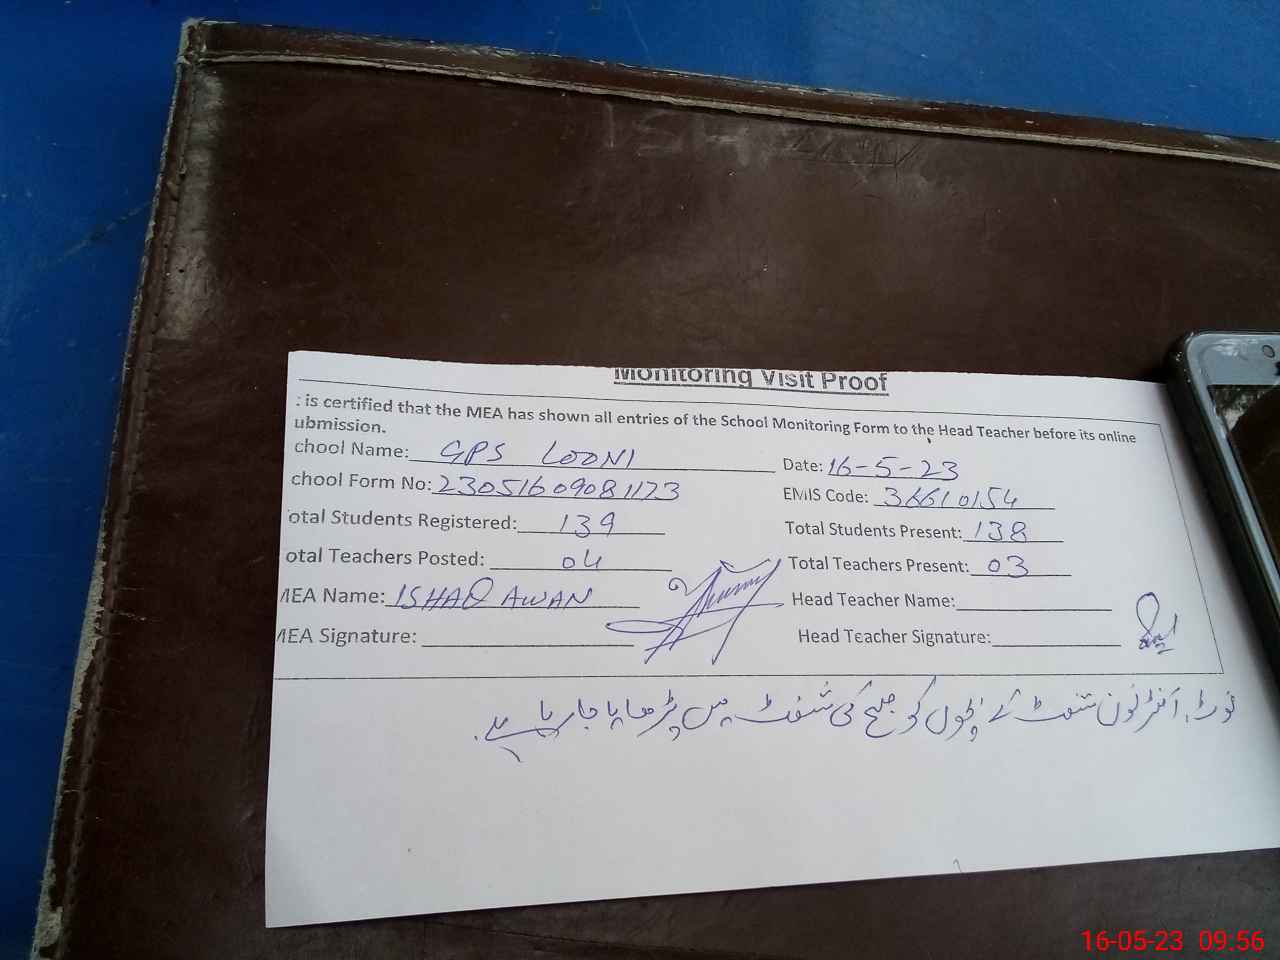 Monitoring Visit Proof
: is certified that the MEA has shown all entries of the School Monitoring Form to the Head Teacher before its online
ubmission.
chool Name: GPS LOONI Date: 16-5-23
chool Form No: 23051609081173 EMIS Code: 36610154
otal Students Registered: 139 Total Students Present: 138
otal Teachers Posted: 04 Total Teachers Present: 03
MEA Name: ISHAQ AWAN Head Teacher Name:
MEA Signature: Head Teacher Signature:
نوٹ، آفٹر نون شفٹ کے بچوں کو صبح کی شفٹ میں پڑھایا جا رہا ہے۔
16-05-23 09:56